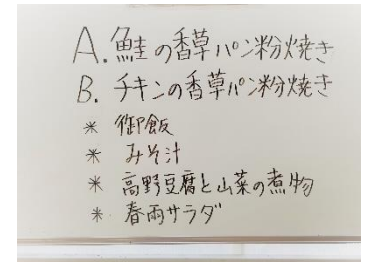 A. 鮭の香草パン粉焼き
B. チキンの香草パン粉焼き
* 御飯
* みそ汁
* 高野豆腐と山菜の煮物
* 春雨サラダ